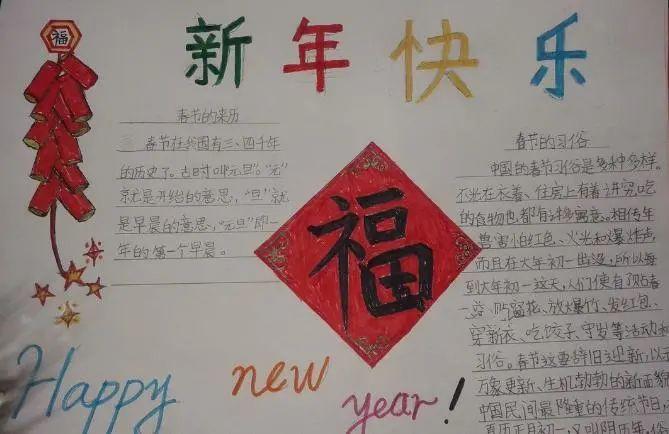 福
新年快乐
春节的来历
春节在我国有三、四千年
的历史了。古时叫"元旦"。"元"
就是开始的意思,"旦"就
是早晨的意思,"元旦"即一
年的第一个早晨。
福
春节的习俗
中国的春节习俗是多种多样。
不光在衣着、住房上有着讲究,吃
的食物也都有许多寓意。相传年
兽害怕红色、火光和爆炸声,
而且在大年初一出没,所以每
到大年初一这天,人们便有了贴春
贴窗花、放爆竹、发红包、
穿新衣、吃饺子、守岁等活动和
习俗。春节这要辞旧迎新,以
万象更新、生机勃勃的新面貌
中国民间最隆重的传统节日,
夏历正月初一,又叫阴历年,俗
Happy new year!